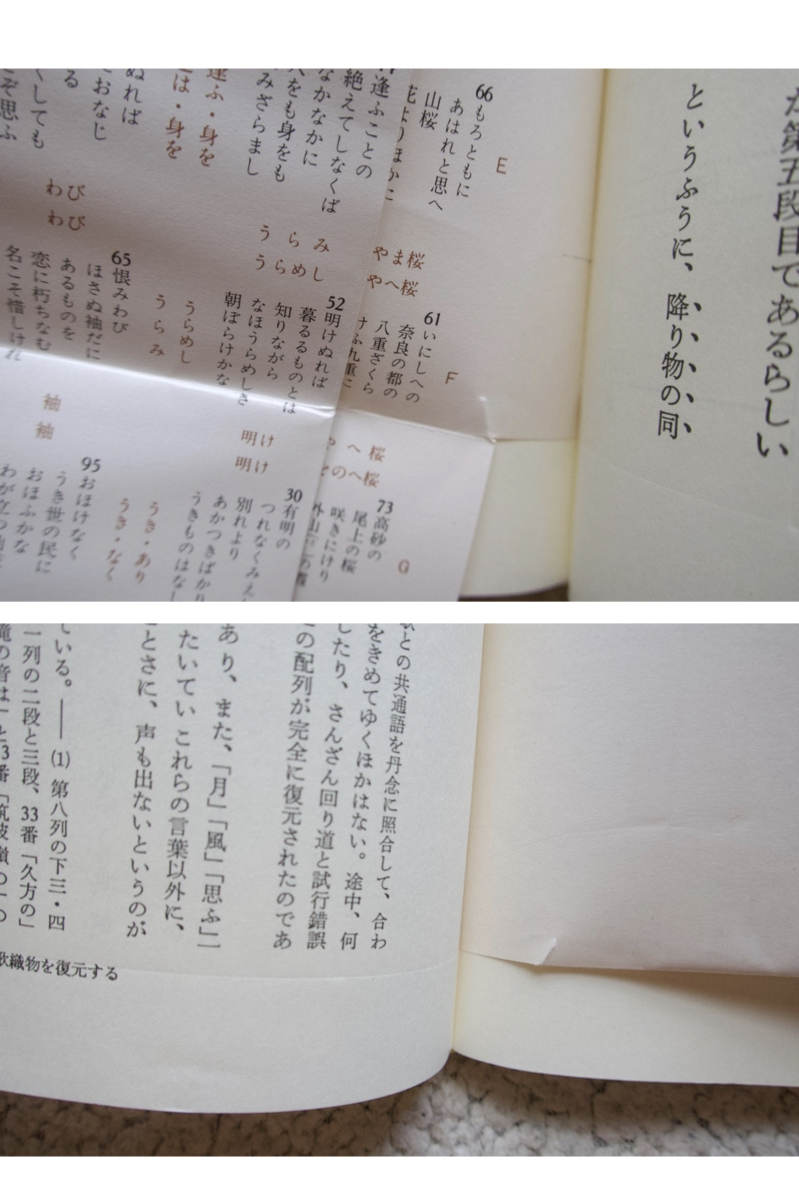 が第五段目であるらしい
というふうに、降り物の同
E
66もろともに
あはれと思へ
山桜
花よりほかに
やま桜
やへ桜
61いにしへの
奈良の都の
八重ざくら
けふ九重に
F
へ桜
のへ桜
73高砂の
尾上の桜
咲きにけり
外山
G
逢ふことの
絶えてしなくば
なかなかに
人をも身をも
みざらまし
うらみ
うらめし
52明けぬれば
暮るるものとは
知りながら
なほうらめしき
朝ぼらけかな
明け
明け
30有明の
つれなくみえ
別れより
あかつきばかり
うきものはなし
逢ふ・身を
は・身を
わび
わび
65恨みわび
ほさぬ袖だに
あるものを
恋に朽ちなむ
名こそ惜しけれ
うらめし
うらみ
袖
袖
95おほけなく
うき世の民に
おほふかな
わが立つ
うき・あり
うき・なく
ぬれば
おなじ
る
くしても
ぞ思ふ
との共通語を丹念に照合して、合わ
をきめてゆくほかはない。途中、何
したり、さんざん回り道と試行錯誤
の配列が完全に復元されたのであ
あり、また、「月」「風」「思ふ」一
たいていこれらの言葉以外に、
とさに、声も出ないというのが
ている。――(1) 第八列の下三・四
一列の二段と三段、33番「久方の」
歌織物を復元する